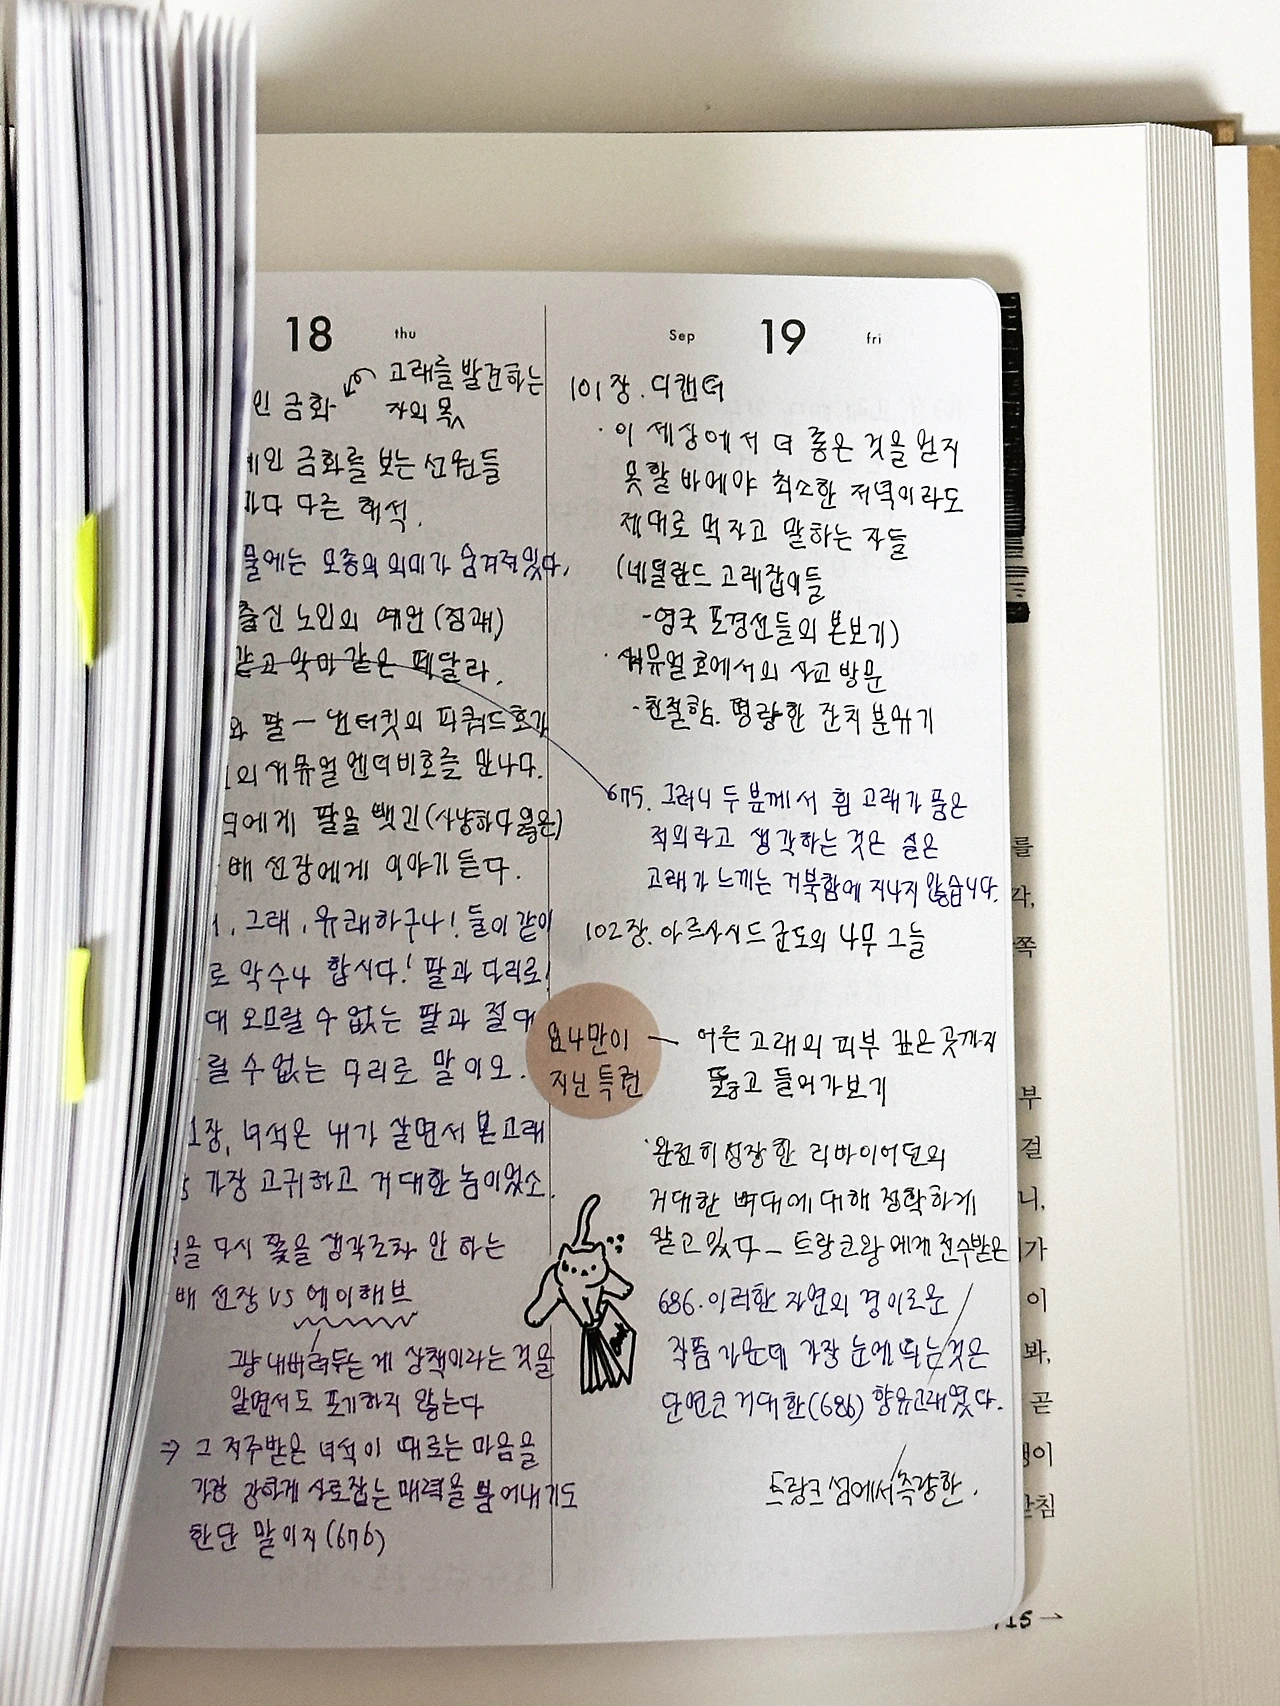 18 thu
고래를 발견하는
자의 몫
인 금화
인 금화를 보는 선원들
마다 다른 해석.
물에는 모종의 의미가 숨겨져있다.
출신 노인의 예언 (점괘)
같고 악마 같은 페달라.
와 팔 - 낸터킷의 피쿼드호가
의 새뮤얼 엔더비호를 만나다.
에게 팔을 뺏긴 (사냥하다 잃은)
배 선장에게 이야기 듣다.
, 그래, 유쾌하구나! 둘이 같이
로 악수나 합시다! 팔과 다리로!
대 오므릴 수 없는 팔과 절대
릴 수 없는 다리로 말이오.
장, 녀석은 내가 살면서 본 고래
가장 고귀하고 거대한 놈이었소.
을 다시 쫓을 생각조차 안 하는
배 선장 vs 에이해브
그냥 내버려두는 게 상책이라는 것을
알면서도 포기하지 않는다
⇒ 그 저주받은 녀석이 때로는 마음을
가장 강하게 사로잡는 매력을 뿜어내기도
한단 말이지 (676)
Sep 19 fri
101장. 디캔터
· 이 세상에서 더 좋은 것을 얻지
못할 바에야 최소한 저녁이라도
제대로 먹자고 말하는 자들
(네덜란드 고래잡이들
- 영국 포경선들의 본보기)
· 새뮤얼호에서의 사교 방문
- 친절함. 명랑한 잔치 분위기
675. 그러니 두 분께서 흰 고래가 품은
적의라고 생각하는 것은 실은
고래가 느끼는 거북함에 지나지 않습니다.
102장. 아르사시드 군도의 나무 그늘
요나만이
지닌 특권
어른 고래의 피부 깊은 곳까지
뚫고 들어가보기
· 완전히 성장한 리바이어던의
거대한 뼈대에 대해 정확하게
알고 있다 - 트랑코왕에게 전수받은
686. 이러한 자연의 경이로운
작품 가운데 가장 눈에 띄는 것은
단연코 거대한 (686) 향유고래였다.
트랑코 섬에서 측량한.
를
각,
쪽
부
걸
니,
가
이
봐,
곧
이
침
715 →